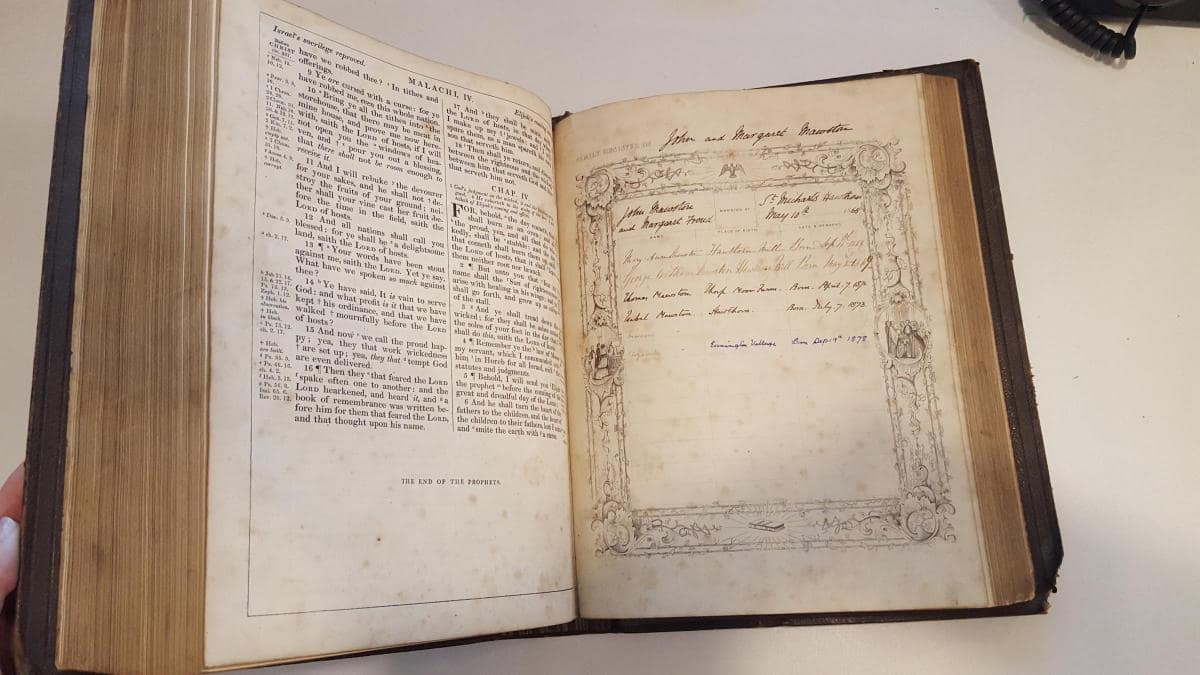 Israel's sacrilege reproved.
MALACHI, IV.
Elijah's
Before
CHRIST
have we robbed thee? In tithes and
offerings.
9 Ye are cursed with a curse: for ye
have robbed me, even this whole nation.
10 Bring ye all the tithes into the
storehouse, that there may be meat in
mine house, and prove me now here-
with, saith the LORD of hosts, if I will
not open you the windows of hea-
ven, and pour you out a blessing,
that there shall not be room enough to
receive it.
11 And I will rebuke the devourer
for your sakes, and he shall not de-
stroy the fruits of your ground; nei-
ther shall your vine cast her fruit be-
fore the time in the field, saith the
LORD of hosts.
12 And all nations shall call you
blessed: for ye shall be a delightsome
land, saith the LORD of hosts.
13 ¶ Your words have been stout
against me, saith the LORD. Yet ye say,
What have we spoken so much against
thee?
14 Ye have said, It is vain to serve
God: and what profit is it that we have
kept his ordinance, and that we have
walked mournfully before the LORD
of hosts?
15 And now we call the proud hap-
py; yea, they that work wickedness
are set up; yea, they that tempt God
are even delivered.
16 ¶ Then they that feared the LORD
spake often one to another: and the
LORD hearkened, and heard it, and a
book of remembrance was written be-
fore him for them that feared the LORD,
and that thought upon his name.
17 And they shall be mine, saith
the LORD of hosts, in that day when
I make up my jewels; and I will
spare them, as a man spareth his own
son that serveth him.
18 Then shall ye return, and discern
between the righteous and the wicked,
between him that serveth God and him
that serveth him not.
CHAP. IV.
FOR, behold, the day cometh, that
shall burn as an oven; and all
the proud, yea, and all that do wic-
kedly, shall be stubble: and the day
that cometh shall burn them up, saith
the LORD of hosts, that it shall leave
them neither root nor branch.
2 ¶ But unto you that fear my
name shall the Sun of righteousness
arise with healing in his wings; and ye
shall go forth, and grow up as calves
of the stall.
3 And ye shall tread down the
wicked; for they shall be ashes under
the soles of your feet in the day that I
shall do this, saith the LORD of hosts.
4 ¶ Remember ye the law of Moses
my servant, which I commanded unto
him in Horeb for all Israel, with the
statutes and judgments.
5 ¶ Behold, I will send you Elijah
the prophet before the coming of the
great and dreadful day of the LORD:
6 And he shall turn the heart of the
fathers to the children, and the heart of
the children to their fathers, lest I come
and smite the earth with a curse.
THE END OF THE PROPHETS.
FAMILY REGISTER OF John and Margaret Mawston
John Mawston
and Margaret Froud
MARRIED AT
St Michaels Hawthorn
May 10th 1868
NAME
PLACE OF BIRTH
DATE
Mary Ann Mawston Hawthorn Mill Born Sept
George William Mawston Hawthorn Mill Born May
Thomas Mawston Sharp Moor Farm. Born. April. 7.
Isabel Mawston Hawthorn. Born. July 7. 1873.
Ermington Village Born Sep 19th 1878